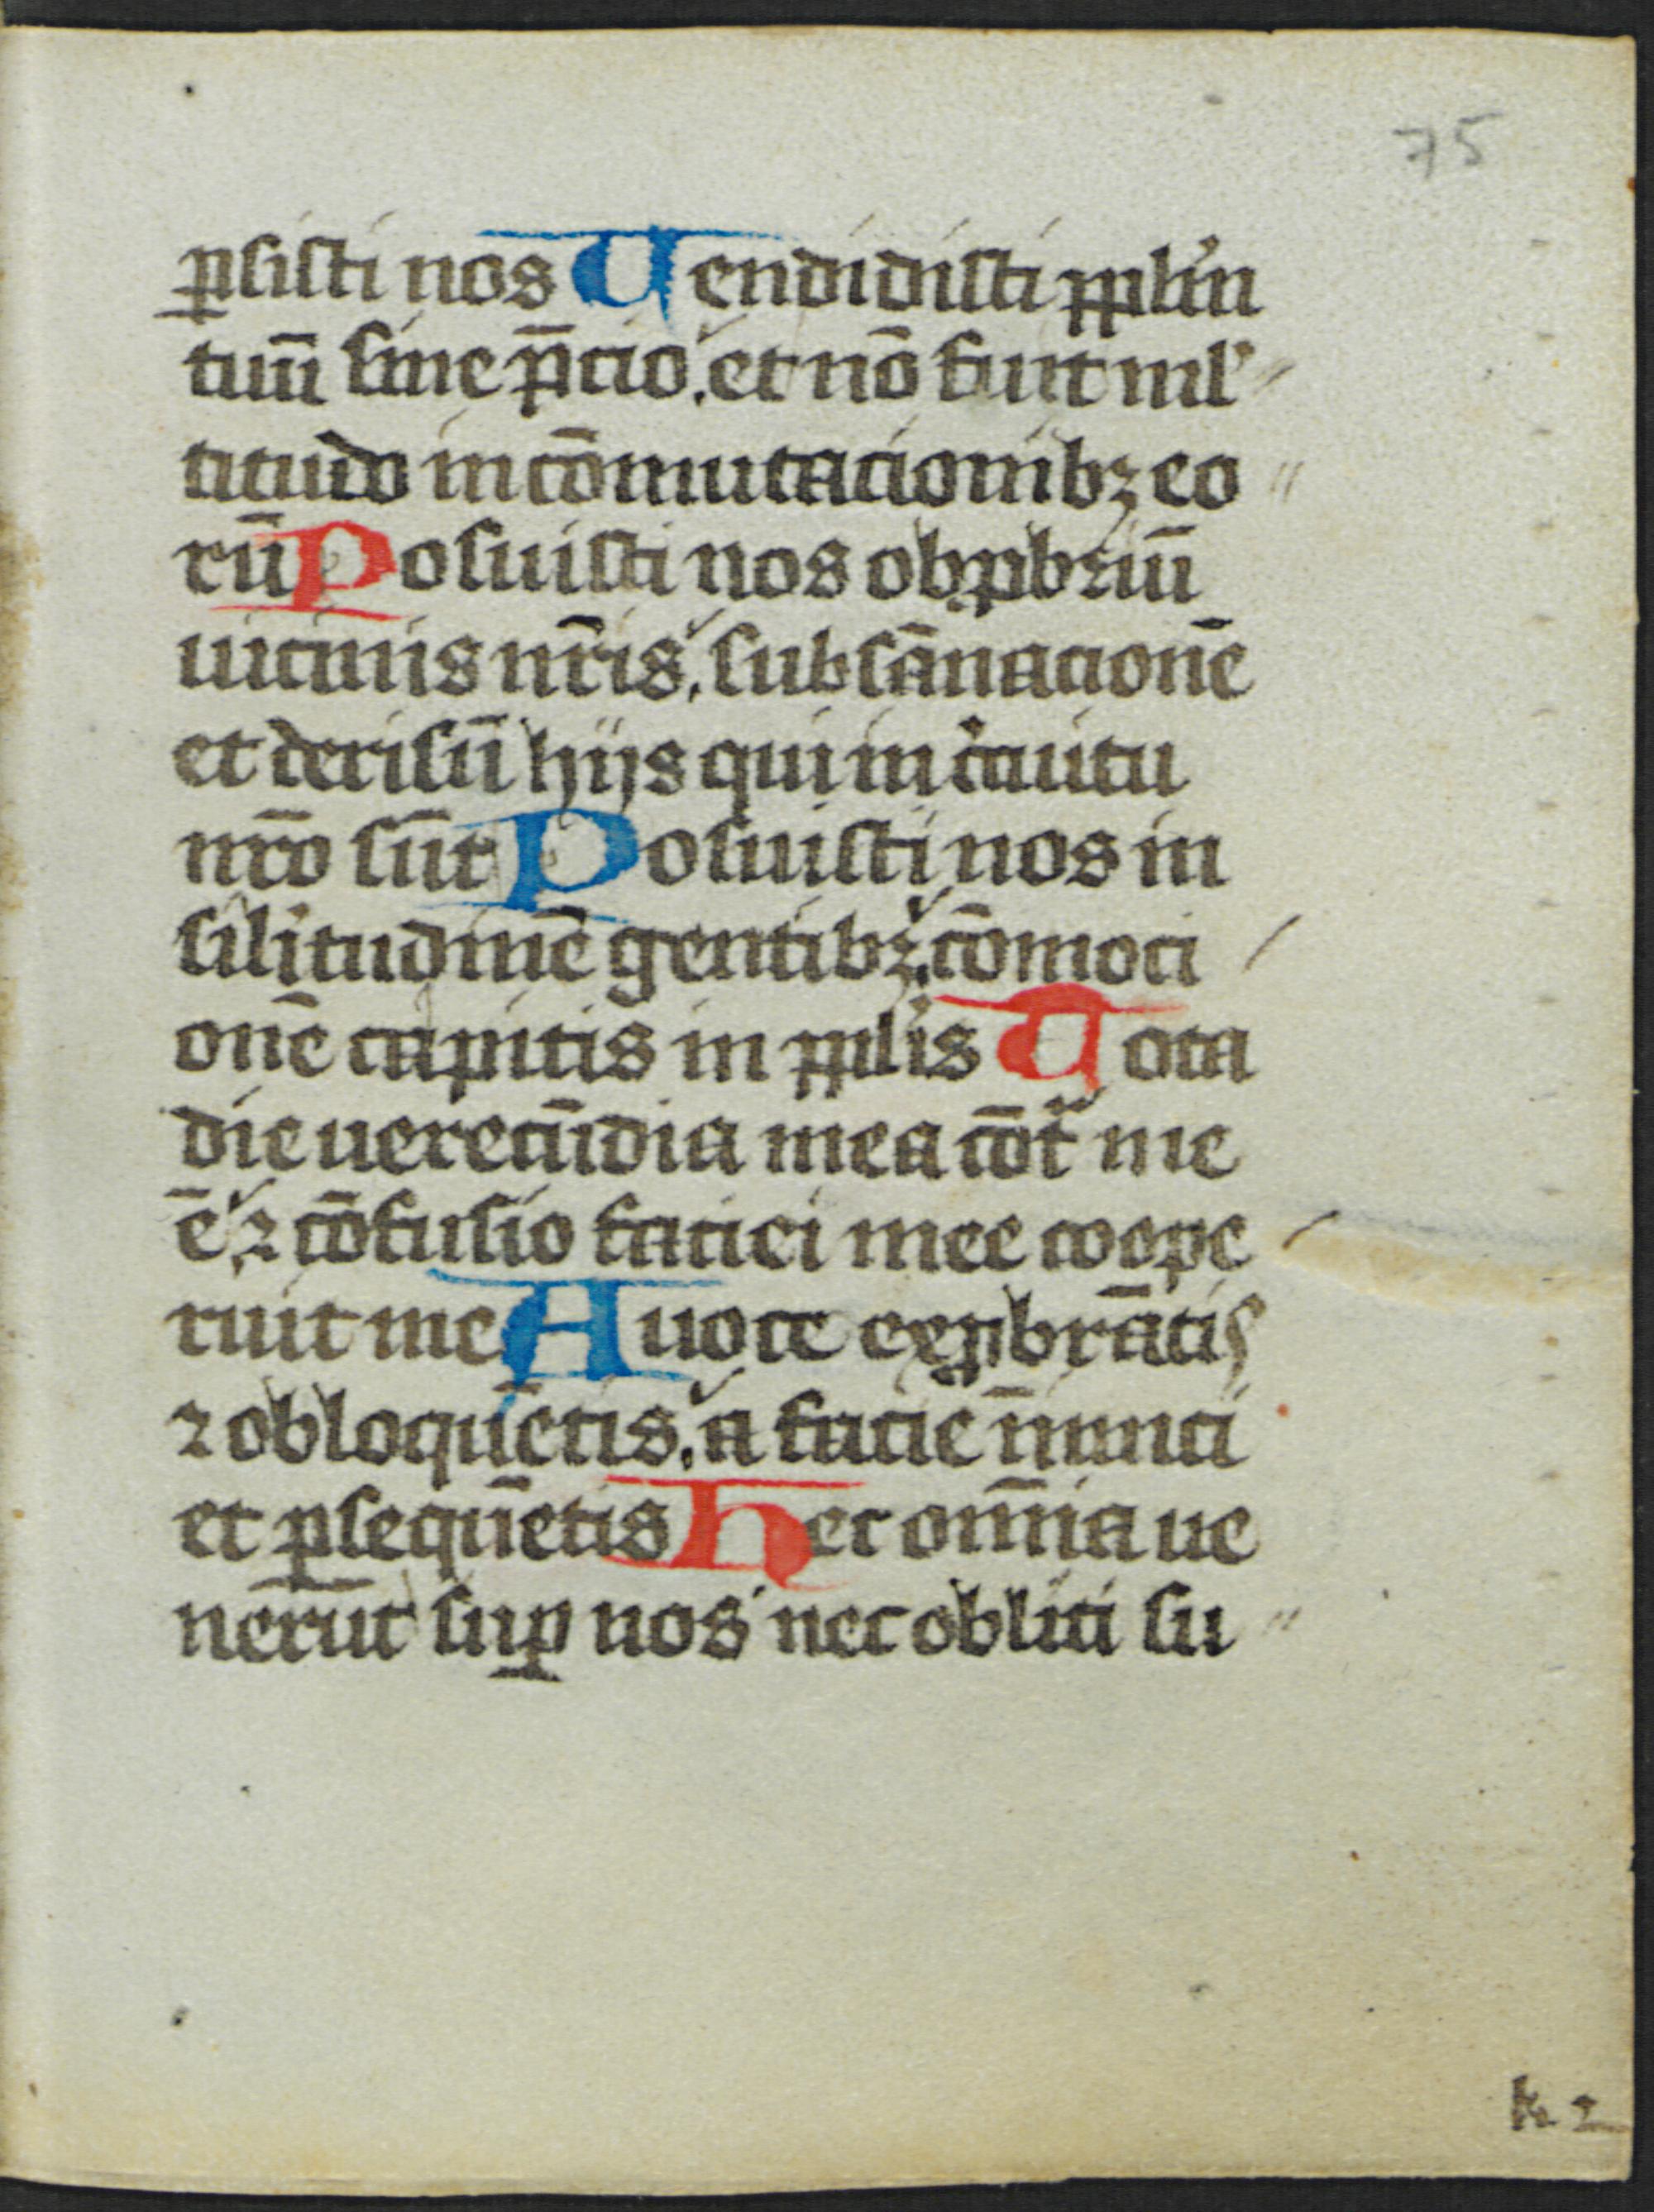 75
ꝑsisti nos Vendidisti ppl'm
tuū sine p̄cio. et nō fuit ml'
titudo in cōmutacionibꝫ eo
rū Posuisti nos obꝓbriū
uicinis nr̄is. subsānacionē
et derisū hijs qui in ciͬcuitu
nr̄o sūt Posuisti nos in
sil'itudinē gentibꝫ. cōmoci
onē capitis in ppl'is Tota
die uerecūdia mea cōt̄ me
ē ⁊ cōfusio faciei mee coope
ruit me A uoce exꝓbrātis
⁊ obloquētis. a facie īimici
et ꝑsequētis Hec om̄ia ue
nerūt suꝑ nos nec obliti su
k 2